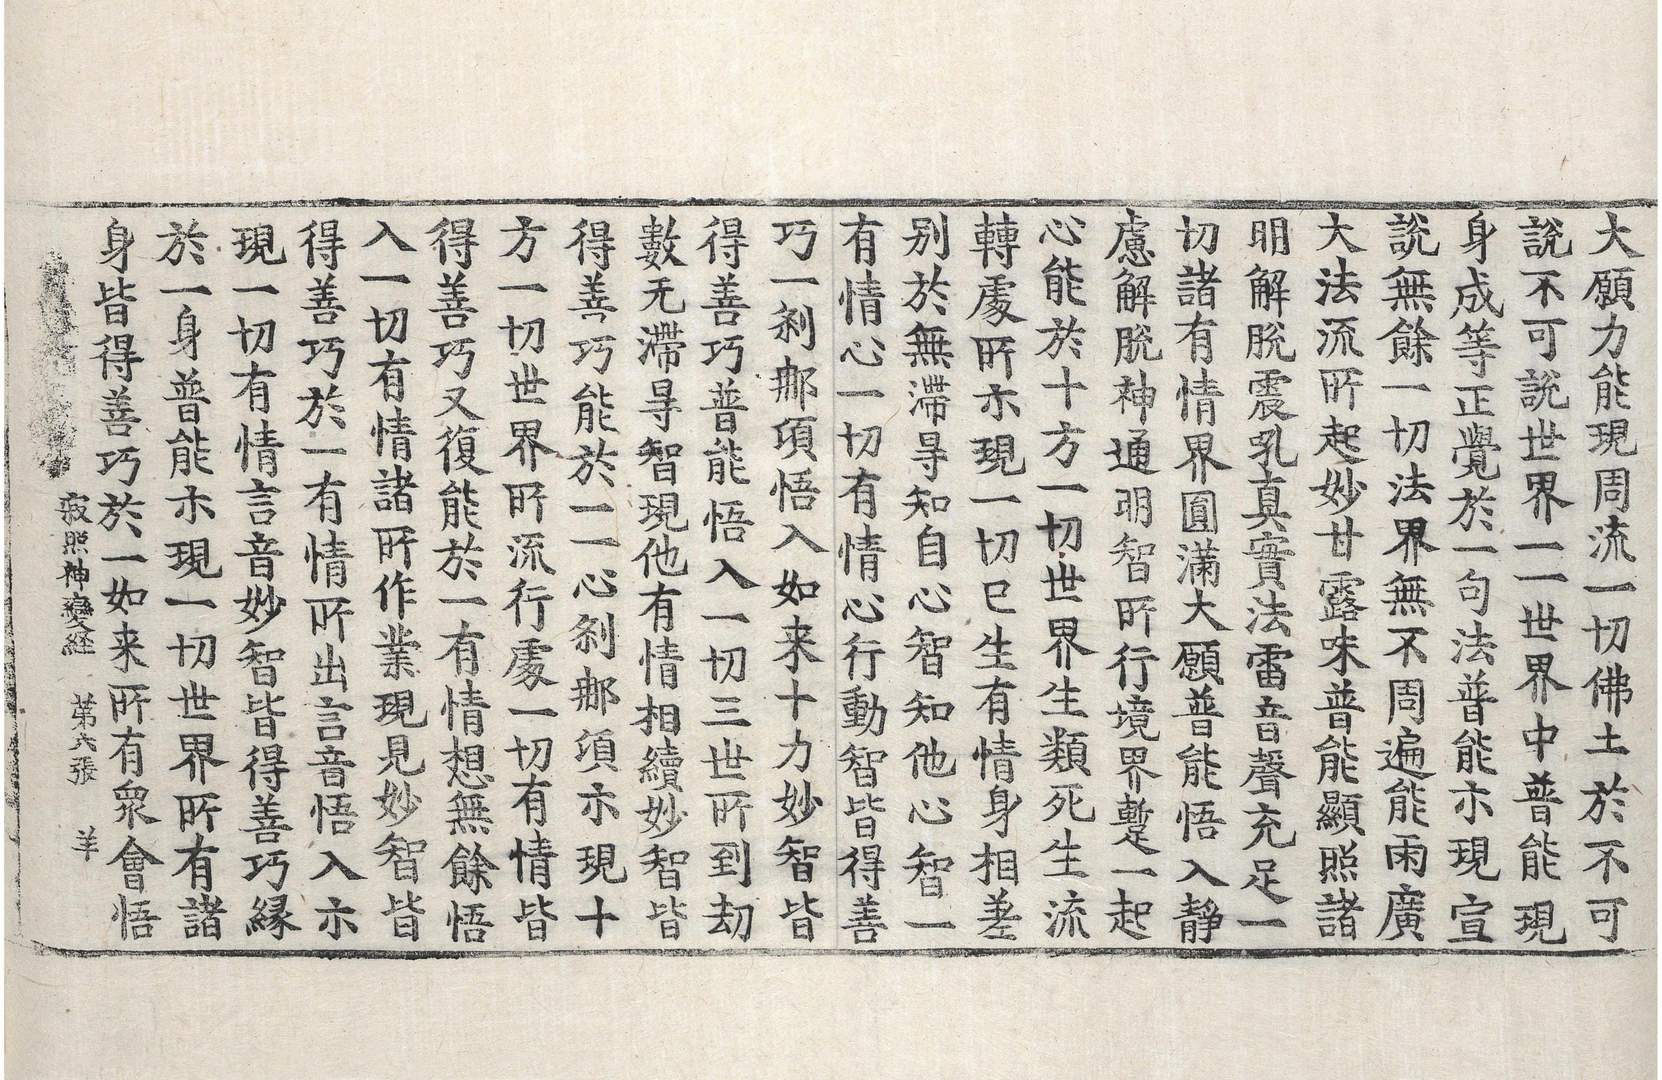 大願力能現周流一切佛土於不可
說不可說世界一一世界中普能現
身成等正覺於一句法普能示現宣
說無餘一切法界無不周遍能雨廣
大法流所起妙甘露味普能顯照諸
明解脫震吼真實法雷音聲充足一
切諸有情界圓滿大願普能悟入靜
慮解脫神通明智所行境界蹔一起
心能於十方一切世界生類死生流
轉處所示現一切已生有情身相差
別於無滯㝵知自心智知他心智一
有情心一切有情心行動智皆得善
巧一剎那頃悟入如来十力妙智皆
得善巧普能悟入一切三世所到劫
數无滯㝵智現他有情相續妙智皆
得善巧能於一一心剎那頃示現十
方一切世界所流行處一切有情皆
得善巧又復能於一有情想無餘悟
入一切有情諸所作業現見妙智皆
得善巧於一有情所出言音悟入示
現一切有情言音妙智皆得善巧緣
於一身普能示現一切世界所有諸
身皆得善巧於一如来所有衆會悟
寂照神變経　第六張　羊